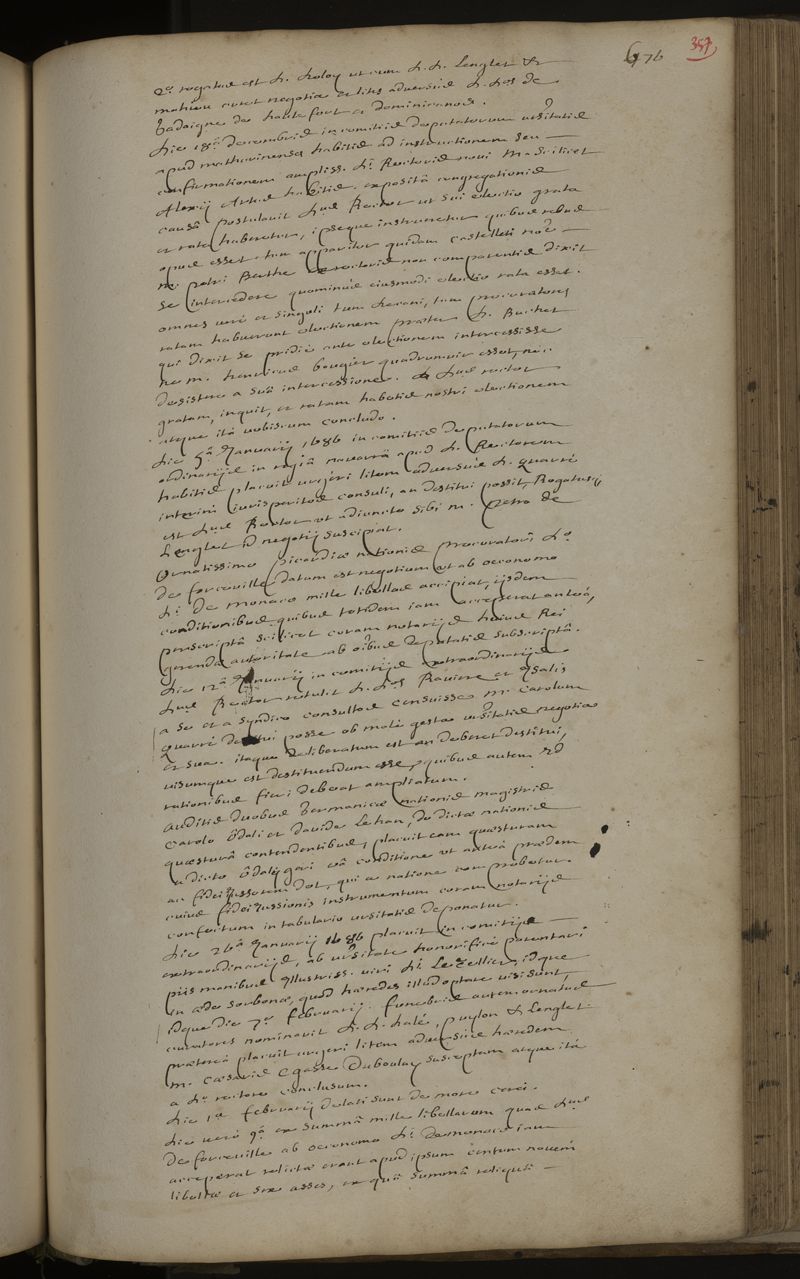 676
357
2º rogatus est D. Holoy ut cum D. D. Lenglet &
mahieu curet negotia et lites adversus D. Dos de
Badaigne de hautefort et dominicanos.
Die 18ª decembris in comitiis deputatorum universitatis
apud mathurinenses habitis ad instructionem seu
confirmationem ampliss. Di Rectoris novi M. scilicet
Alexij Artus habitis. expositâ congregationis
causâ postulavit Dnus Rector ut sui electio grata
et rata haberetur, ipseque instrueretur quibus rebus
opus esset. tum apparitor quidam castelleti noe
m. petri Berthe exrectoris non comparentis dixit
se intercedere quominus eiusmodi electio rata esset.
omnes vero et singuli tum decani, tum procuratores
ratam habuerunt electionem praeter D. Buchet
qui dixit se pridie ante electionem intercessisse
ne m. henricus bougier quadrumvir esset, nec
desistere a suâ intercessione. Dnus rector
gratam, inquit, et ratam habetis nostri electionem
atque ità vobiscum concludo.
Die 5ª Januarij 1686 in comitiis deputatorum
ordinarijs in regiâ navarrâ apud D. Rectorem
habitis placuit urgeri litem adversus D. quarré
interim iurisperitos consuli, an destitui possit, Rogatusque
est Dnus Rector ut adiuncto sibi m. petro de
Lenglet id negotij suscipiat.
Ornatissimo picardiae nationis procuratori Do
de forceville datum est negotium ut ab oeconomo
Di De monaco mille libellas accipiat, ijsdem
conditionibus quibus totidem iam acceperat anteà,
perscriptâ scilicet coram notarijs huius Rei
gerendae autoritate ab oibus deputatis subscriptâ.
Die 12ª Januarij in comitijs extraordinarijs
Dnus Rector retulit D. Dos Raviere et Nsalis
a se et a syndico consultos censuisse m. Carolum
quarré destitui posse ob malè gesta universitatis negotia
et sua. itaque deliberatum est an deberet destitui,
visumque est destituendum esse, quibus autem
rationibus fieri debeat ampliatum.
Auditis duobus Germanicae nationis magistris
Carolo ôdali et davide Lehan, de dictae nationis
quaesturâ contendentibus, placuit eam quaesturam
a dicto ôdaly geri eâ conditione ut anteà praedem
ac fideiussorem det, qui a natione comprobetur.
cuius fideiussionis instrumentum coram notarijs
confectum in tabulario universitatis deponatur.
Die 26ª Januarij 1686 placuit in comitijs
extraordinarijs, ab universitate honorificè parentari
piis manibus Illustriss. viri Di Le Tellier, idque
in aede sorbonae, quod haeredes illud optare visi sunt,
idque die 7ª februarij. funebris autem ornatus
curatores nominavit D. D. halé, puylon & Lenglet.
praetereà placuit urgeri litem adversus haeredem
m. Caesaris Egasse Duboulay susceptam atque ità
a Do rectore conclusum.
Die 1ª februarij delati sunt de more cerei.
Die vero 9ª ex summâ mille libellarum quas Dnus
De forceville ab oeconomo Di de monaco iam
acceperat relictae erant apud ipsum centum novem
libellae et sex asses, ex quâ summâ reliquâ